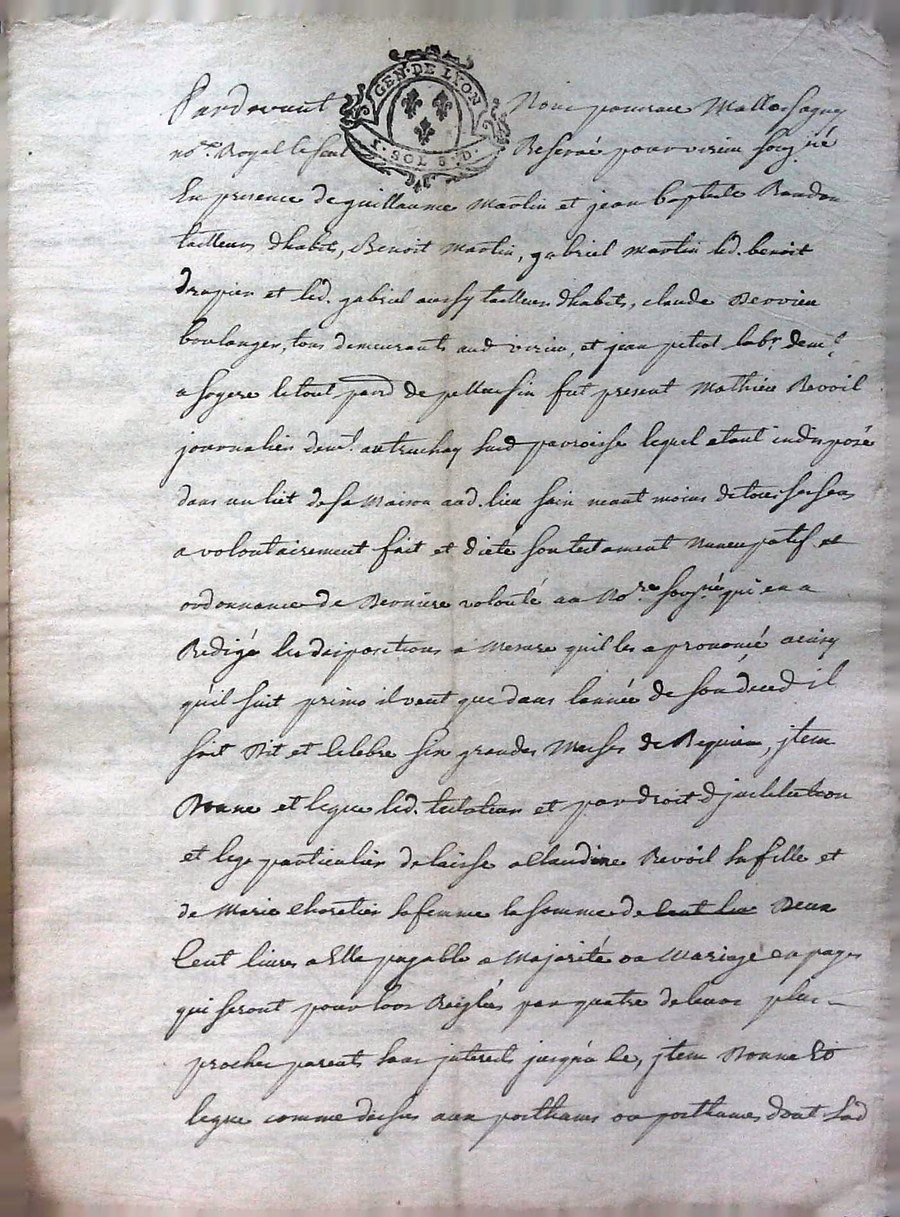 GEN. DE LYON
1. SOL 8. D.
Pardevant Nous
no.re Royal le seul Reservé pour virieu soug.né
En presence de guillaume Martin et jean baptiste
tailleurs dhabits, Benoit Martin, gabriel Martin led. benoit
drapier et led. gabriel aussy tailleur dhabits, claude Dervieu
boulanger, tous demeurants aud virieu, et jean petiot labr. dem.t
a Soyere le tout parr.d de pellussin fut present Mathieu Revoil
journalier dem.t au truchay susd parroisse lequel etant indisposé
dans un lict de sa Maison aud. lieu sain neant moins de tous ses sens
a volontairement fait et dicté son testament Nuncupatif et
ordonnance de Derniere volonté au No.re soug.né qui en a
Redigé les dispositions a Mesure quil les a prononcé ainsy
qu'il suit primo il veut que dans lannée de son déced il
soit Dit et celebré six grandes Messes de Requiem, jtem
Donne et legue led. testateur et par droit d'jnstitution
et legs particulier delaisse a Claudine Revoil sa fille et
de Marie Choretier sa femme la somme de Deux
Cent livres a Elle payable a Majorité ou Mariage en payes
qui seront pour lors Reiglés par quatre de leurs plus
proches parents sans jnterets jusqu'a ce, jtem Donne Et
legue comme dessus aux posthumes ou posthumes dont lad